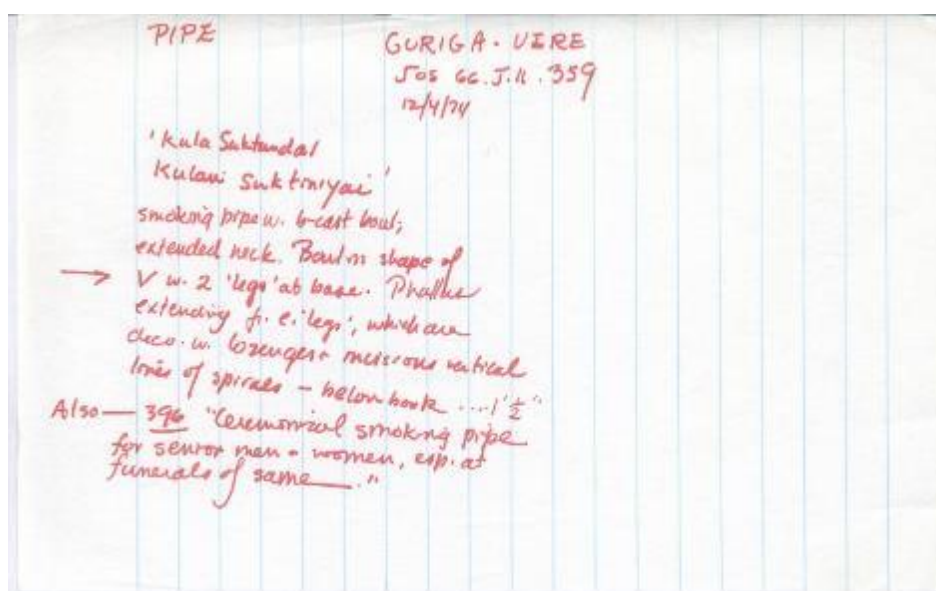 PIPE
GURIGA - VERE
Jos 66.J.11.359
12/4/74
'Kula Suktundal
Kulani Suktiniyai'
smoking pipe w. b-cast bowl;
extended neck. Bowl in shape of
→ V w. 2 'legs' at base. Phallus
extending fr. e. 'legs', which are
deco. w. lozenges + incisions vertical
lines of spirals — below 1' ½"
Also — 396 "Ceremonial smoking pipe
for senior men + women, esp. at
funerals of same ___."